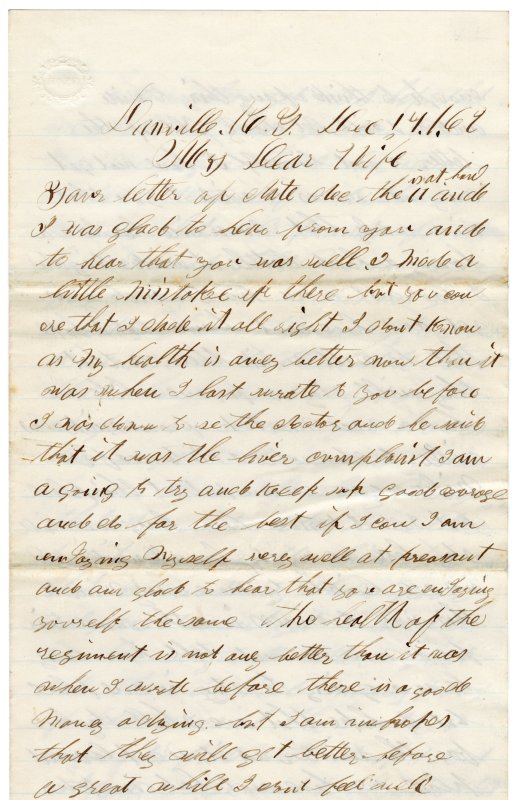 Danville, K.Y. Dec 14, 1862
My Dear Wife
is at hand
Your letter of date dec the 11 ande
I was glad to hear from you ande
to hear that you was well. I made a
little mistake up there but you can
se that I dade it all right I dont know
as my health is aney better now than it
was when I last wrate to you before
I was down to se the doctor and he said
that it was the liver complaint I am
a going to try and keep up good corage
and do for the best if I can I am
enJoying myself verey well at preasant
and am glad to hear that you are enJoying
yourself the same The health of the
regiment is not aney better than it was
when I wrate before there is a goode
maney adying. but I am in hopes
that they will get better before
a great whill I dont feel well